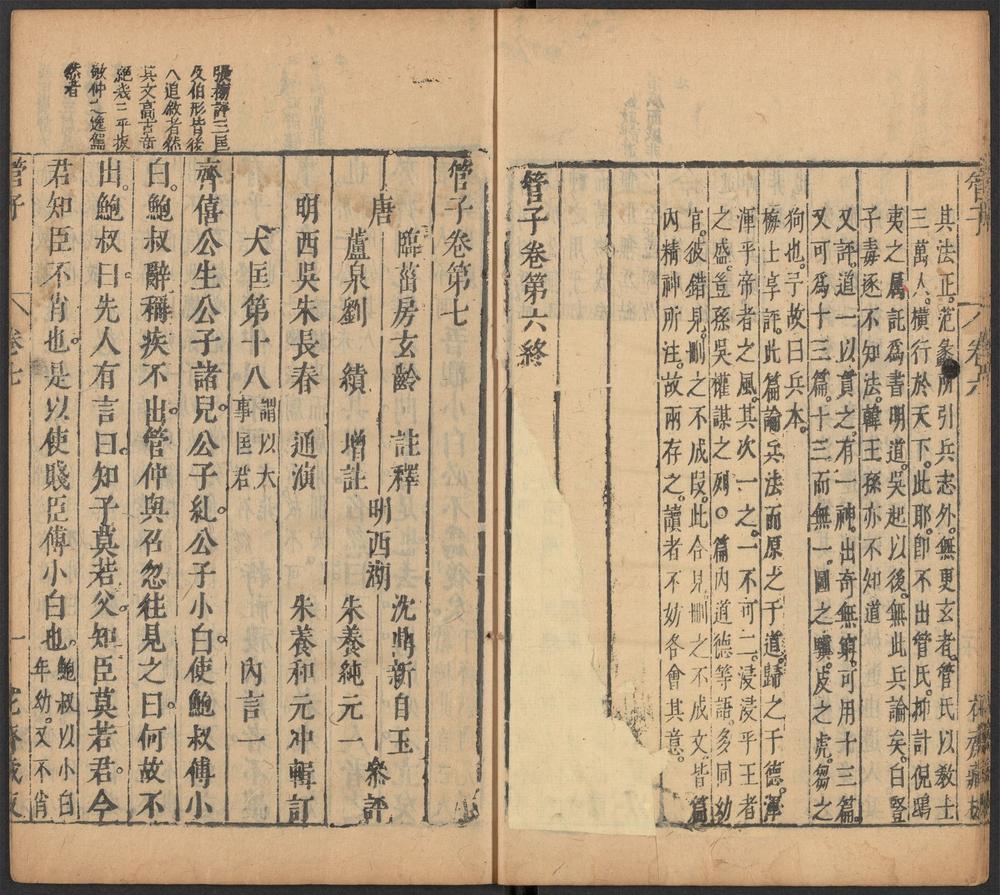 其法正。范蠡所引兵志外。無更玄者。管氏以教士
三萬人。橫行於天下。此耶。卽不出管氏。抑計倪鴟
夷之属託爲書明道。吳起以後。無此兵論矣。白豎
子毒逐不知法。韓王孫亦不知道
又評。道一以貫之。有一神。出奇無窮。可用十三篇。
又可爲十三篇。十三而無一。圖之驥。皮之虎。芻之
狗也。予故曰兵本。
梅士卓評。此篇論兵法而原之于道。歸之于德。渾
渾乎帝者之風。其次一之。一不可二。浸浸乎王者
之盛。豈孫吳權謀之列。○篇内道德等語。多同幼
官。彼錯見。刪之不成段。此合見。刪之不成文。皆篇
内精神所注。故兩存之。讀者不妨各會其意。
管子卷第六終
管子
卷六
花齋藏板
管子卷第七
唐 臨菑房玄齡 註釋
蘆泉劉績 增註
明西吳朱長春 通演
明西湖
沈鼎新自玉
朱養純元一
朱養和元冲輯訂
叅評
大匡第十八 謂以大事匡君 内言一
齊僖公生公子諸兒。公子糺。公子小白。使鮑叔傅小
白。鮑叔辭稱疾不出。管仲與召忽往見之曰。何故不
出。鮑叔曰。先人有言曰。知子莫若父。知臣莫若君。今
君知臣不肖也。是以使賤臣傅小白也。鮑叔以小白年幼。又不肖
張榜評三匡
及伯形皆後
人追敘者然
其文高古奇
絕
敏仲之逸
然者
管子
卷七
一
花齋藏板